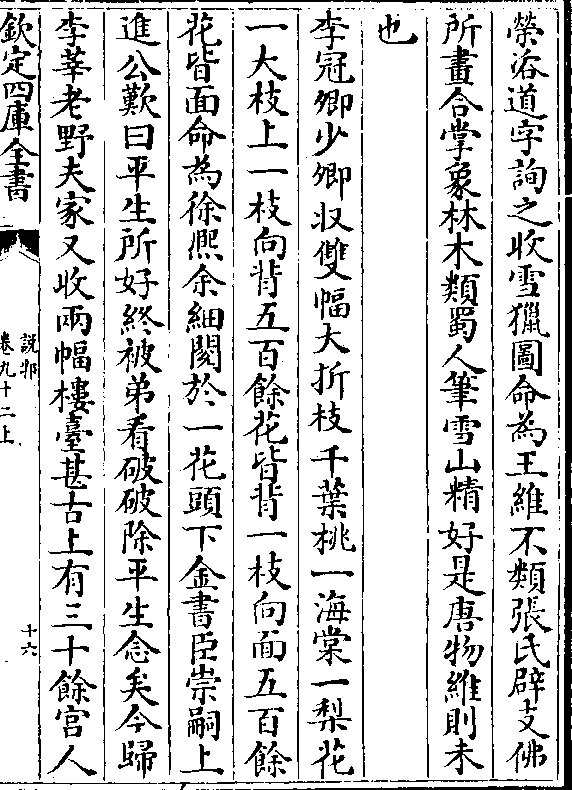 榮浴道字詢之收雪獵圖命為王維不類張氏辟支佛
所畫合掌象林木類蜀人筆雪山精好是唐物維則未
也
李冠卿少卿収雙幅大折枝千葉桃一海棠一梨花
一大枝上一枝向背五百餘花皆背一枝向面五百餘
花皆面命為徐熈余細閱於一花頭下金書臣崇嗣上
進公歎曰平生所好終被弟看破破除平生念矣今歸
李莘老野夫家又收兩幅樓臺甚古上有三十餘宫人
欽定四庫全書
說郛
卷九十二上
十六